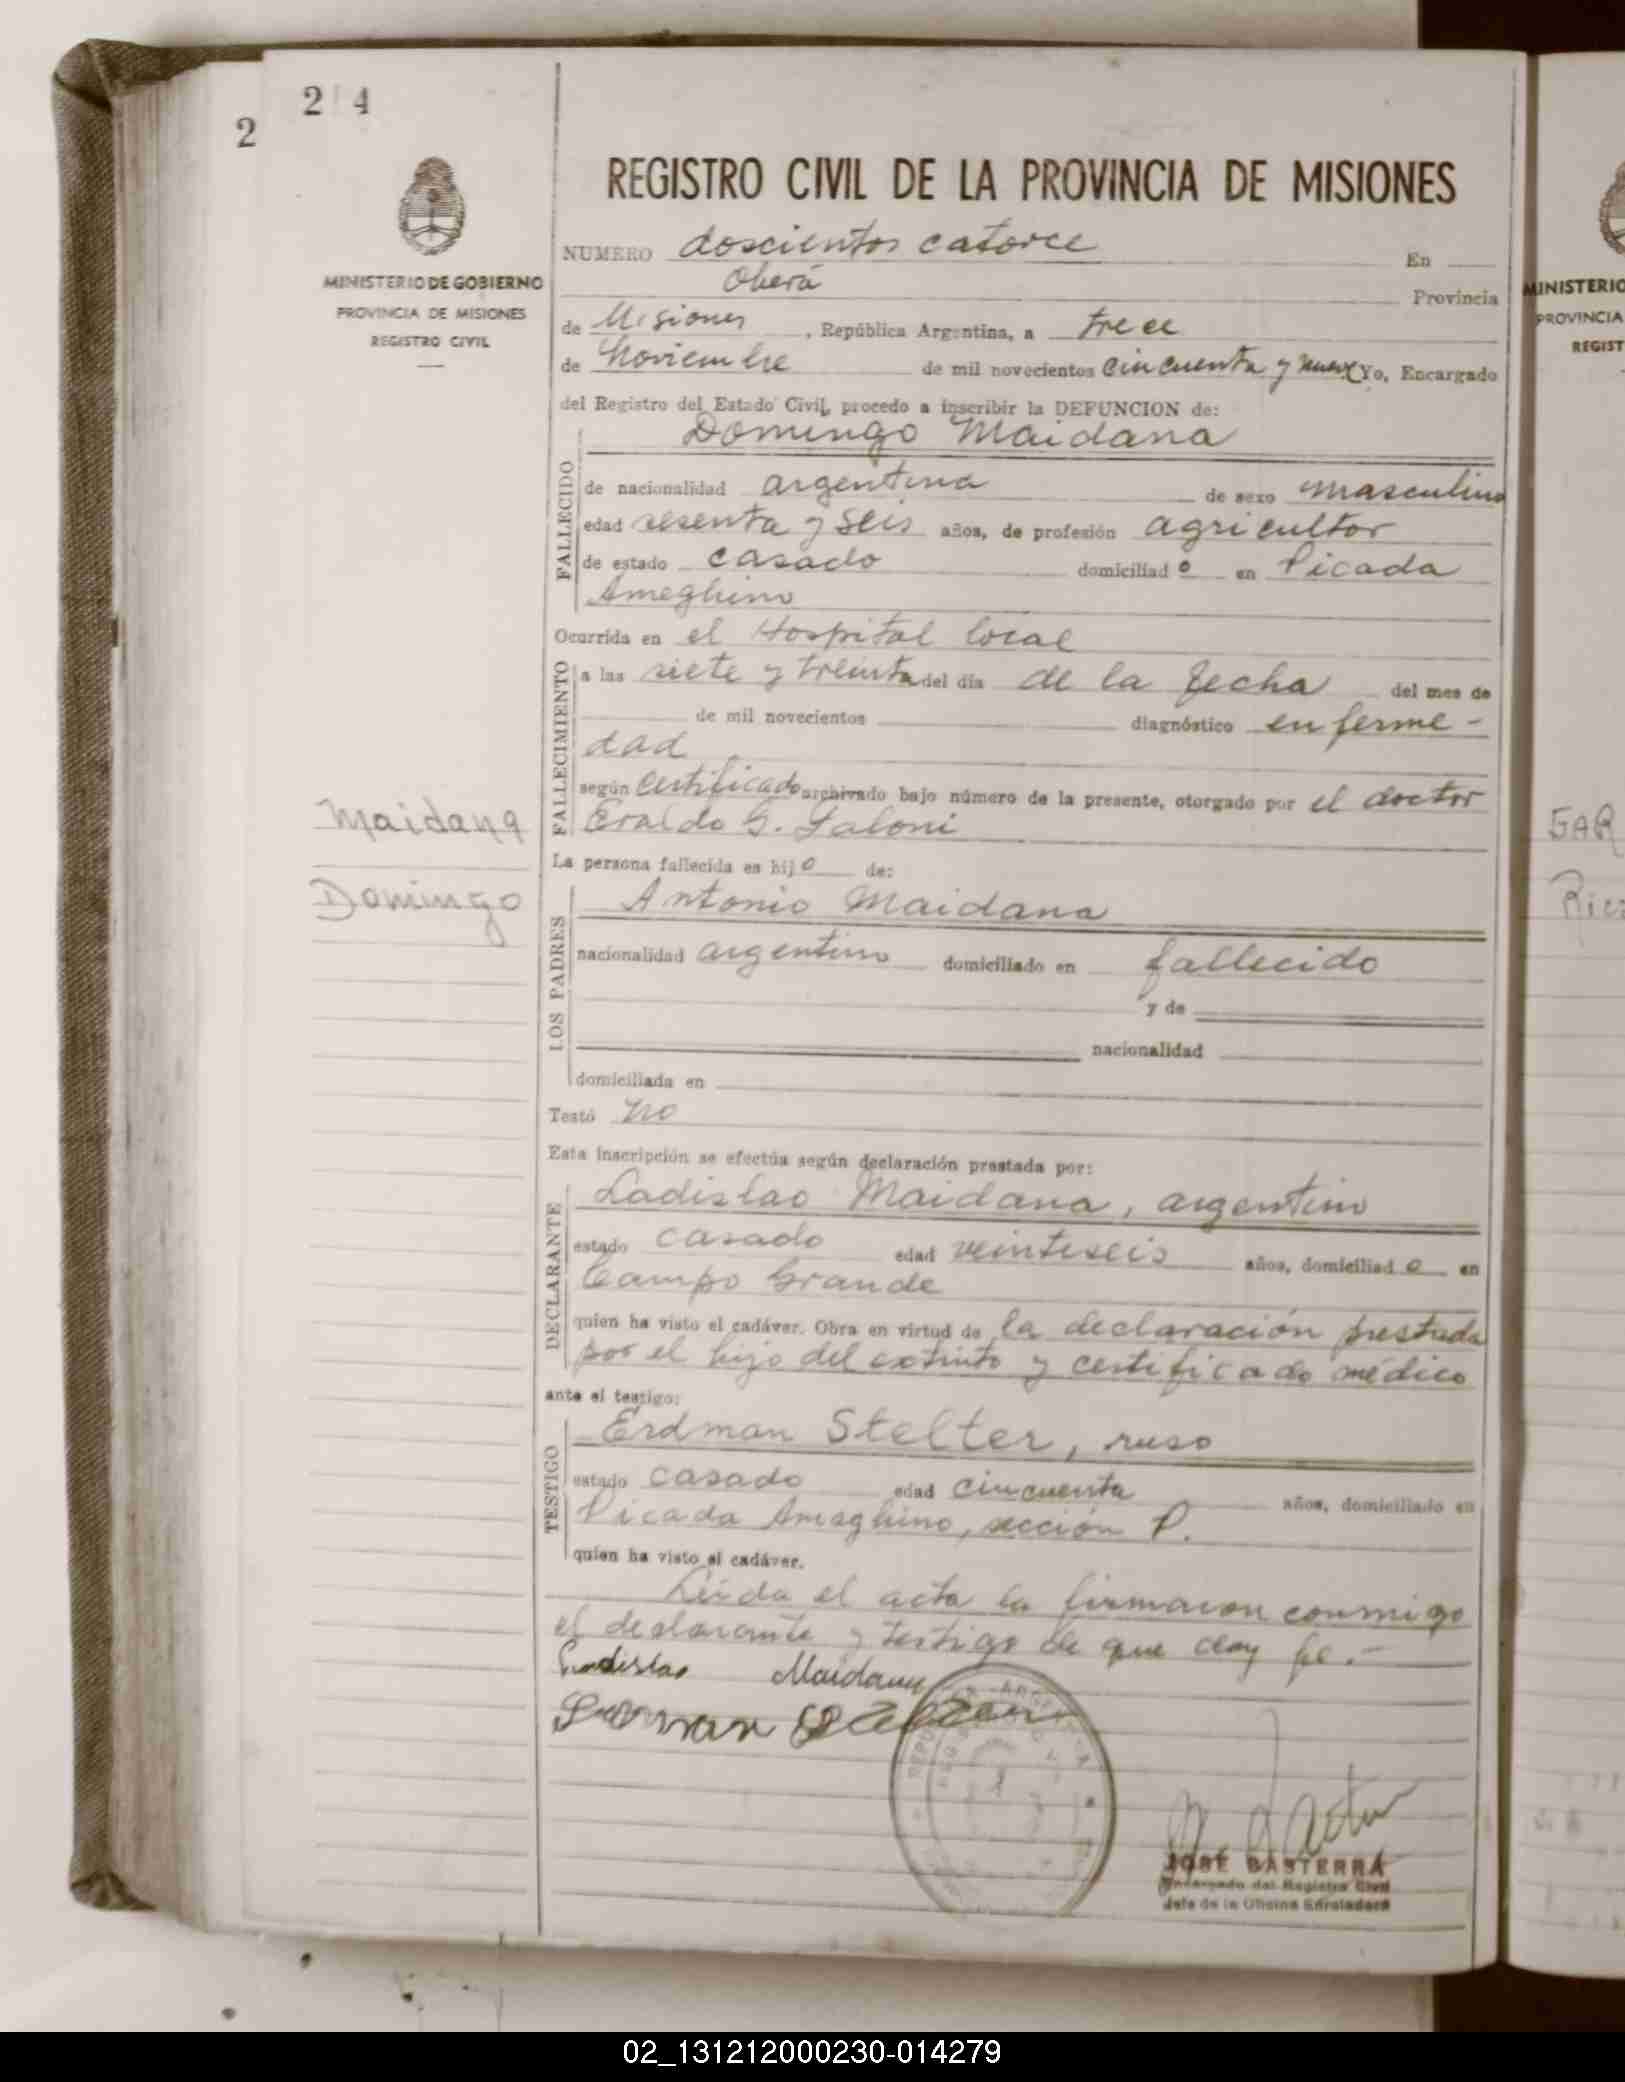 2 1 4
2
MINISTERIO DE GOBIERNO
PROVINCIA DE MISIONES
REGISTRO CIVIL
REGISTRO CIVIL DE LA PROVINCIA DE MISIONES
NUMERO doscientos catorce En
Oberá Provincia
de Misiones, República Argentina, a trece
de Noviembre de mil novecientos cincuenta y nueve Yo, Encargado
del Registro del Estado Civil, procedo a inscribir la DEFUNCION de:
Domingo Maidana
FALLECIDO
de nacionalidad argentina de sexo masculino
edad sesenta y seis años, de profesión agricultor
de estado casado domiciliado en Picada
Ameghino
Ocurrida en el Hospital local
FALLECIMIENTO
a las siete y treinta del día de la fecha del mes de
de mil novecientos diagnóstico enferme-
dad
según certificado archivado bajo número de la presente, otorgado por el doctor
Eraldo G.
La persona fallecida es hijo de:
Maidana
Domingo
LOS PADRES
Antonio Maidana
nacionalidad argentino domiciliado en fallecido
y de
nacionalidad
domiciliada en
Testó no
Esta inscripción se efectúa según declaración prestada por:
DECLARANTE
Ladislao Maidana, argentino
estado casado edad veintiseis años, domiciliado en
Campo Grande
quien ha visto el cadáver. Obra en virtud de la declaración prestada
por el hijo del extinto y certificado médico
ante el testigo:
TESTIGO
Erdman Stelter, ruso
estado casado edad cincuenta años, domiciliado en
Picada Ameghino, sección P.
quien ha visto el cadáver.
Leída el acta la firmaron conmigo
el declarante y testigo de que doy fe.-
Ladislao Maidana
JOSÉ BASTERRA
Encargado del Registro Civil
Jefe de la Oficina Enroladora
MINISTERIO
PROVINCIA
REGIST
GAR
02_131212000230-014279